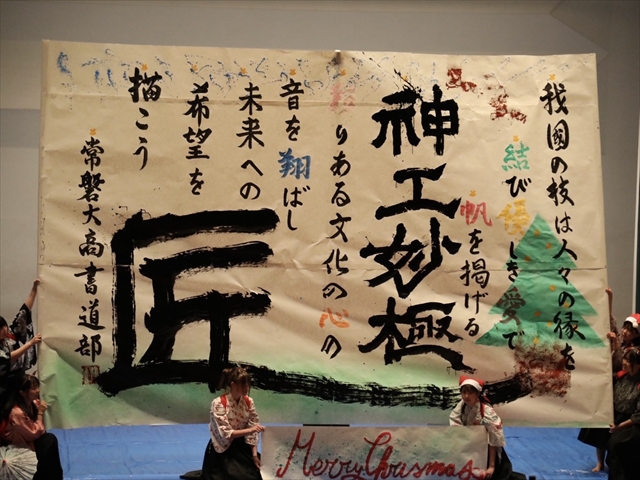 我國の技は人々の縁を
結びしき愛で
帆を掲げる
神工妙極
りある文化の心の
音を翔ばし
未来への
希望を
描こう
匠
常磐大高書道部
Merry Chrismas